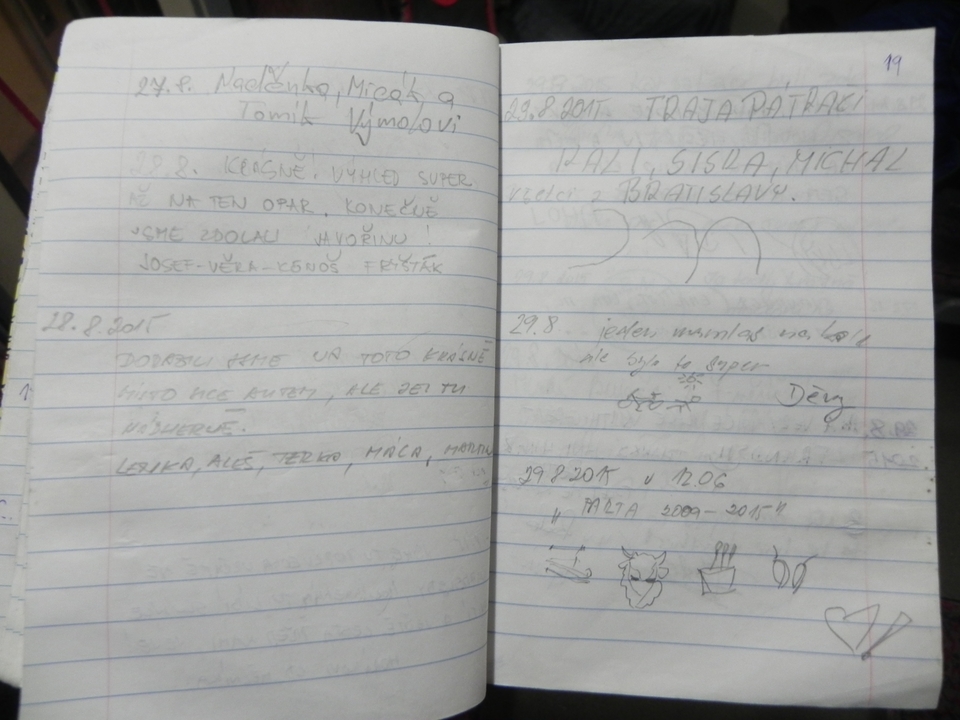 27.8. Naděnka, Micák a
Tomík Výmolovi
28.8. KRÁSNĚ! VÝHLED SUPER
AŽ NA TEN OPAR. KONEČNĚ
JSME ZDOLALI JAVOŘINU!
JOSEF-VĚRA- FRIŠTÁK
28.8.2015
DORAZILI JSME NA TOTO KRÁSNÉ
MÍSTO SICE AUTEM, ALE JE TU
NÁDHERNĚ.
LENKA, ALEŠ, TERKA, MÁCA, MARTIN
19
29.8.2015 TRAJA PÁTRAČI
PALI, SISRA, MICHAL
všetci z BRATISLAVY.
29.8. jeden na kole
ale bylo to super
29 8 2015 v 12.06
„ PARTA 2009-2015"